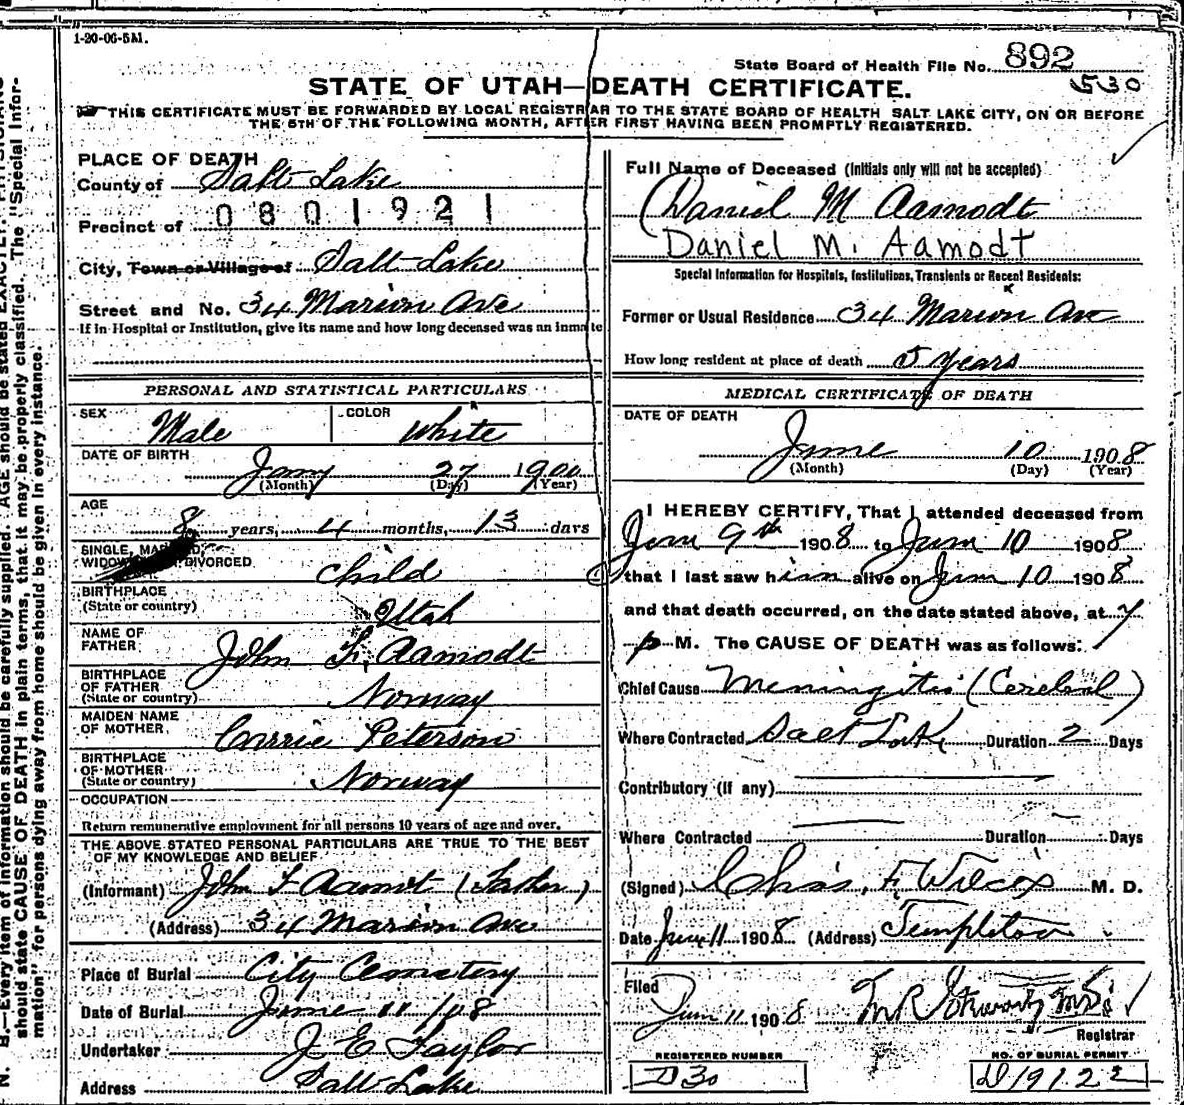 1-20-06-5M.
State Board of Health File No. 892
530
STATE OF UTAH—DEATH CERTIFICATE.
THIS CERTIFICATE MUST BE FORWARDED BY LOCAL REGISTRAR TO THE STATE BOARD OF HEALTH SALT LAKE CITY, ON OR BEFORE
THE 5TH OF THE FOLLOWING MONTH, AFTER FIRST HAVING BEEN PROMPTLY REGISTERED.
PLACE OF DEATH
County of Salt Lake
0801921
Precinct of
City, Town or Village of Salt Lake
Street and No. 34 Marion Ave
If in Hospital or Institution, give its name and how long deceased was an inmate
PERSONAL AND STATISTICAL PARTICULARS
SEX Male COLOR White
DATE OF BIRTH Jany 27 1900
(Month) (Day) (Year)
AGE
8 years, 4 months, 13 days
SINGLE,
DIVORCED Child
BIRTHPLACE
(State or country) Utah
NAME OF
FATHER John F. Aamodt
BIRTHPLACE
OF FATHER
(State or country) Norway
MAIDEN NAME
OF MOTHER Carrie Peterson
BIRTHPLACE
OF MOTHER
(State or country) Norway
OCCUPATION
Return remunerative employment for all persons 10 years of age and over.
THE ABOVE STATED PERSONAL PARTICULARS ARE TRUE TO THE BEST
OF MY KNOWLEDGE AND BELIEF
(Informant) John F Aamot (Father)
(Address) 34 Marion Ave
Place of Burial City Cemetery
Date of Burial June 11/08
Undertaker J E Taylor
Address Salt Lake
Full Name of Deceased (Initials only will not be accepted)
Daniel M Aamodt
Daniel M. Aamodt
Special Information for Hospitals, Institutions, Transients or Recent Residents:
Former or Usual Residence 34 Marion Ave
How long resident at place of death 5 years
MEDICAL CERTIFICATE OF DEATH
DATE OF DEATH
June 10 1908
(Month) (Day) (Year)
I HEREBY CERTIFY, That I attended deceased from
Jun 9th 1908 to Jun 10 1908
that I last saw him alive on Jun 10 1908
and that death occurred, on the date stated above, at 7
p M. The CAUSE OF DEATH was as follows:
Chief Cause Meningitis (Cerebral)
Where Contracted Salt Lake Duration 2 Days
Contributory (if any)
Where Contracted Duration Days
(Signed) Chas. F. Wilcox M. D.
Date June 11 1908 (Address) Templeton
Filed
Jun 11 1908
Registrar
REGISTERED NUMBER
D30
NO. OF BURIAL PERMIT
D19122
N. B.—Every item of information should be carefully supplied. AGE should be stated EXACTLY.
should state CAUSE OF DEATH in plain terms, that it may be properly classified. The "Special Infor-
mation" for persons dying away from home should be given in every instance.